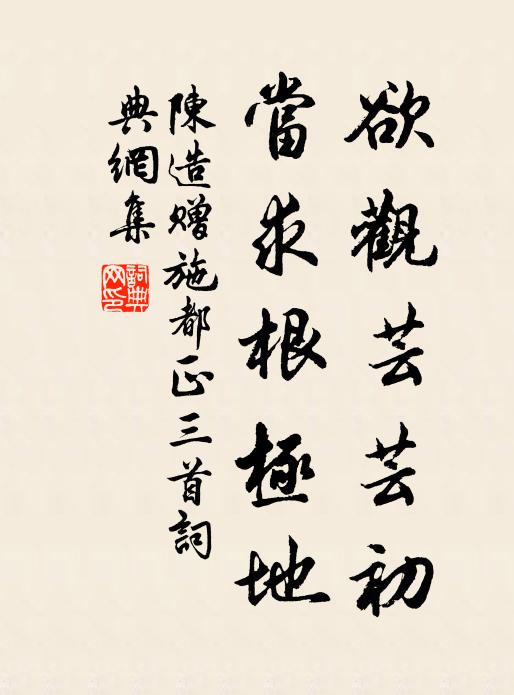 欲觀芸芸初
當求根極地
陳造贈施都正三首詞
典網集
詞典
网印